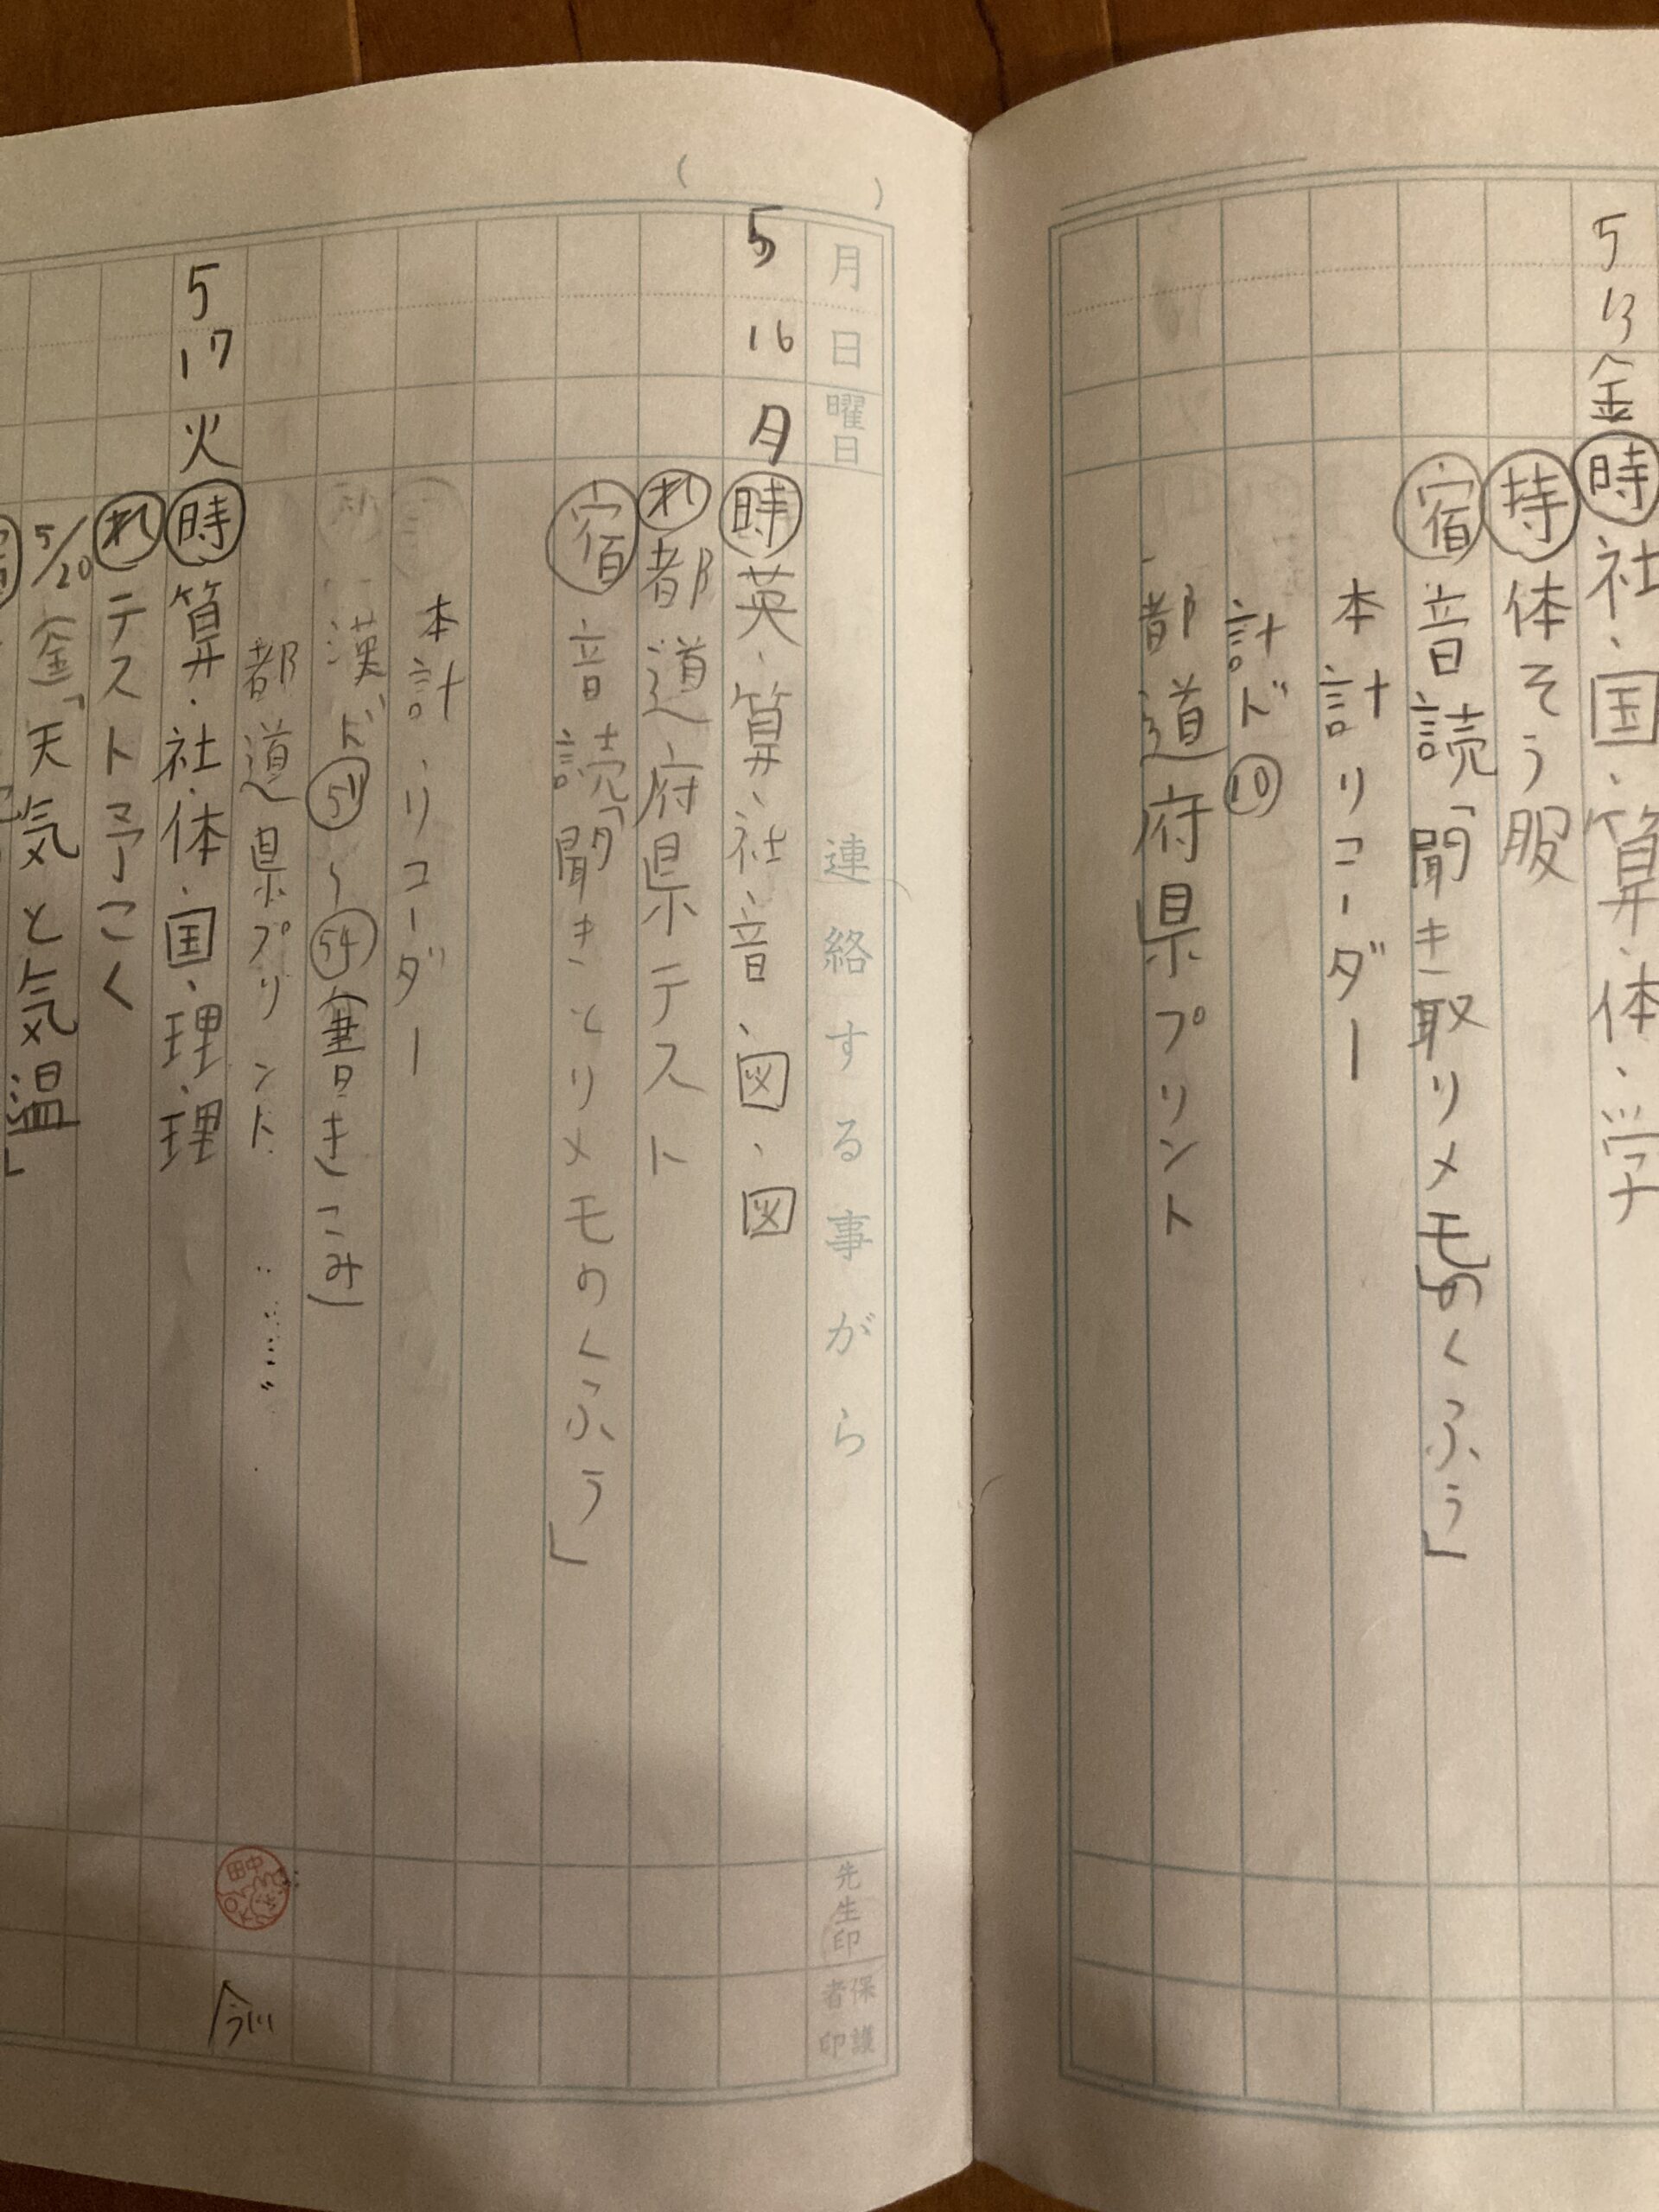 5 13 金 時 社・国・算・体・学
持 体そう服
宿 音読「聞き取りメモのくふう」
本計リコーダー
計ド⑩
都道府県プリント
月 日 曜日 連絡する事がら 先生印 保護者印
5 16 月 時 英・算・社・音・図・図
れ 都道府県テスト
宿 音読「聞きとりメモのくふう」
本計・リコーダー
漢ド�51〜�54(書きこみ)
都道県プリント 田中 OK 今川
5 17 火 時 算・社・体・国・理・理
れ テスト予こく
5/20 金「天気と気温」